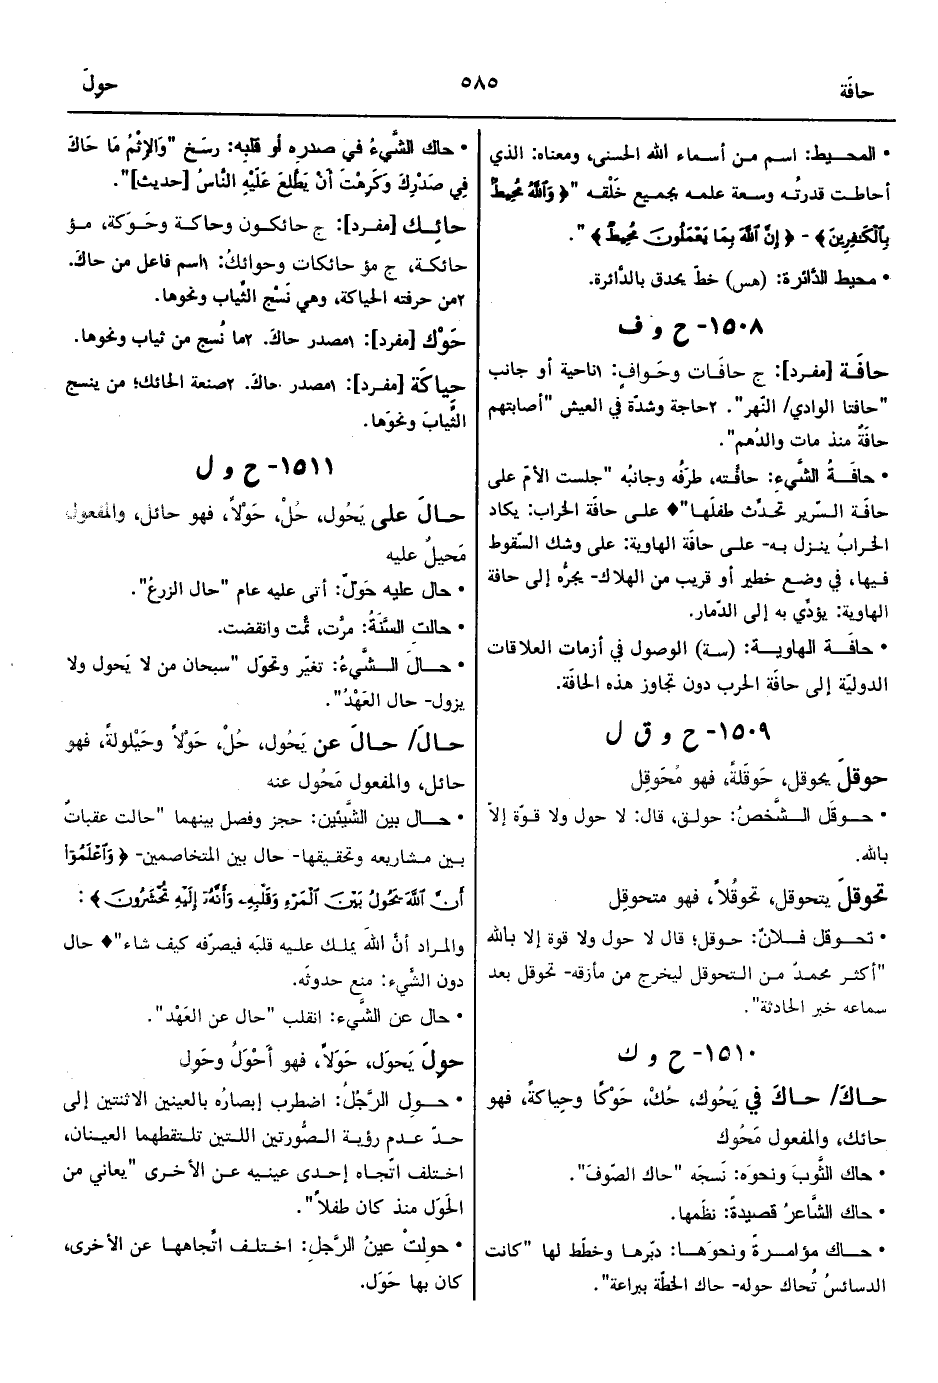 حافَة
٥٨٥
حولَ
• المحيط: اسم من أسماء الله الحسنى، ومعناه: الذي
أحاطت قدرتُه وسعة علمه بجميع خَلْقه "﴿ وَٱللَّهُ مُحِيطٌۢ
بِٱلْكَٰفِرِينَ﴾ - ﴿ إِنَّ ٱللَّهَ بِمَا يَعْمَلُونَ مُحِيطٌ ﴾ ".
• محيط الدَّائرة: (هس) خطّ يحدق بالدَّائرة.
١٥٠٨- ح و ف
حافَة [مفرد]: ج حافَات وحَوافٍ: ١ناحية أو جانب
"حافتا الوادي/ النّهر". ٢حاجة وشدّة في العيش "أصابتهم
حافَةٌ منذ مات والدُهم".
• حافَةُ الشَّيء: حافَّته، طرَفُه وجانبُه "جلست الأمّ على
حافَة السّرير تحدِّث طفلَها"♦ على حافَة الخراب: يكاد
الخرابُ ينزل به- على حافَة الهاوية: على وشك السّقوط
فيها، في وضع خطير أو قريب من الهلاك- يجرُّه إلى حافَة
الهاوية: يؤدِّي به إلى الدّمار.
• حافَة الهاوية: (سة) الوصول في أزمات العلاقات
الدوليّة إلى حافَة الحرب دون تجاوز هذه الحافَة.
١٥٠٩- ح و ق ل
حوقلَ يحوقل، حَوقَلةً، فهو مُحَوقِل
• حوقَل الشَّخصُ: حولق، قال: لا حول ولا قوّة إلاّ
بالله.
تحوقلَ يتحوقل، تحوقُلاً، فهو متحوقِل
• تحوقل فلانٌ: حوقل؛ قال لا حول ولا قوة إلا بالله
"أكثر محمدٌ من التحوقل ليخرج من مأزقه- تحوقل بعد
سماعه خبر الحادثة".
١٥١٠- ح و ك
حاكَ/ حاكَ في يَحُوك، حُكْ، حَوْكًا وحِياكةً، فهو
حائك، والمفعول مَحُوك
• حاك الثَّوبَ ونحوَه: نَسجَه "حاك الصّوفَ".
• حاك الشَّاعرُ قصيدةً: نظَمها.
• حاك مؤامرةً ونحوَها: دبّرها وخطّط لها "كانت
الدسائسُ تُحاك حوله- حاك الخطّة ببراعة".
• حاك الشَّيءُ في صدره أو قلبِه: رسَخ "وَالإِثْمُ مَا حَاكَ
فِي صَدْرِكَ وَكَرِهْتَ أَنْ يَطَّلِعَ عَلَيْهِ النَّاسُ [حديث]".
حائِك [مفرد]: ج حائكون وحاكة وحَوَكة، مؤ
حائكة، ج مؤ حائكات وحوائكُ: ١اسم فاعل من حاكَ.
٢من حرفته الحياكة، وهي نَسْج الثِّياب ونحوها.
حَوْك [مفرد]: ١مصدر حاكَ. ٢ما نُسج من ثياب ونحوها.
حِياكَة [مفرد]: ١مصدر حاكَ. ٢صنعة الحائك؛ من ينسج
الثِّيابَ ونحوَها.
١٥١١- ح و ل
حالَ على يَحُول، حُلْ، حَوْلاً، فهو حائل، والمفعول
مَحِيلٌ عليه
• حال عليه حَوْلٌ: أتى عليه عام "حال الزرعُ".
• حالتِ السَّنَةُ: مرَّت، تمَّت وانقضت.
• حال الشَّيءُ: تغيّر وتحوّل "سبحان من لا يَحول ولا
يزول- حال العَهْدُ".
حالَ/ حالَ عن يَحُول، حُلْ، حَوْلاً وحَيْلولةً، فهو
حائل، والمفعول مَحُول عنه
• حال بين الشَّيئين: حجز وفصل بينهما "حالت عقباتٌ
بين مشاريعه وتحقيقها- حال بين المتخاصمين- ﴿ وَٱعْلَمُوٓا۟
أَنَّ ٱللَّهَ يَحُولُ بَيْنَ ٱلْمَرْءِ وَقَلْبِهِۦ وَأَنَّهُۥٓ إِلَيْهِ تُحْشَرُونَ ﴾ :
والمراد أنَّ اللهَ يملك عليه قلبَه فيصرّفه كيف شاء"♦ حال
دون الشَّيء: منع حدوثَه.
• حال عن الشَّيء: انقلب "حال عن العَهْد".
حوِلَ يَحوَل، حَوَلاً، فهو أَحْوَلُ وحَوِل
• حوِل الرَّجُلُ: اضطرب إبصارُه بالعينين الاثنتين إلى
حدّ عدم رؤية الصُّورتين اللتين تلتقطهما العينان،
اختلف اتِّجاه إحدى عينيه عن الأخرى "يعاني من
الحَوَل منذ كان طفلاً".
• حوِلتْ عينُ الرَّجلِ: اختلف اتِّجاهها عن الأخرى،
كان بها حَوَل.